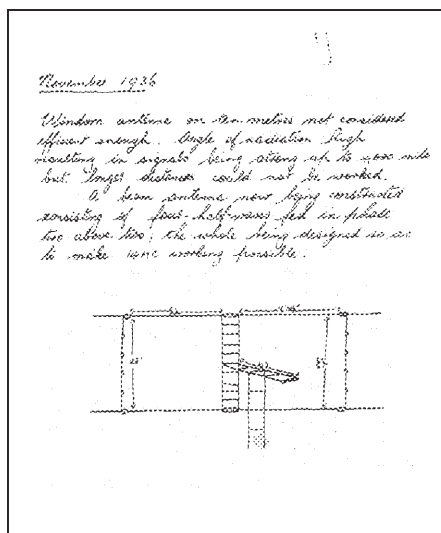 November 1936
Windom antenna on ten metres not considered
efficient enough. Angle of radiation high
resulting in signals being strong up to 4000 mile
but longer distances could not be worked.
A beam antenna now being constructed
consisting of four half-waves fed in phase
two above two; the whole being designed so as
to make working possible.